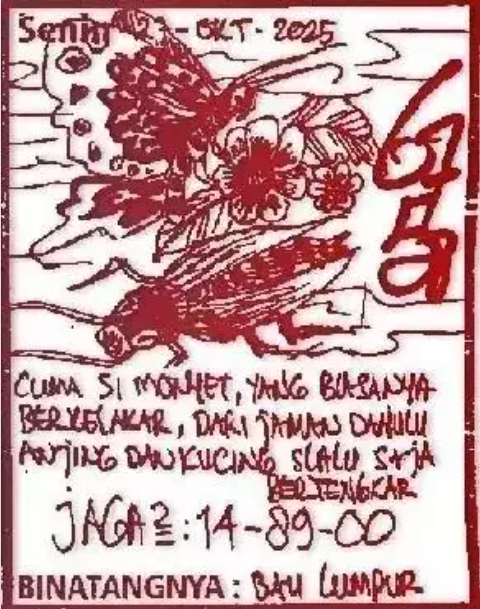 Senin - OKT - 2025
CUMA SI MONYET, YANG BIASANYA
BERKELAKAR, DARI JAMAN DAHULU
ANJING DAN KUCING SLALU SAJA
BERTENGKAR
JAGA2 : 14-89-00
BINATANGNYA : BAU LUMPUR